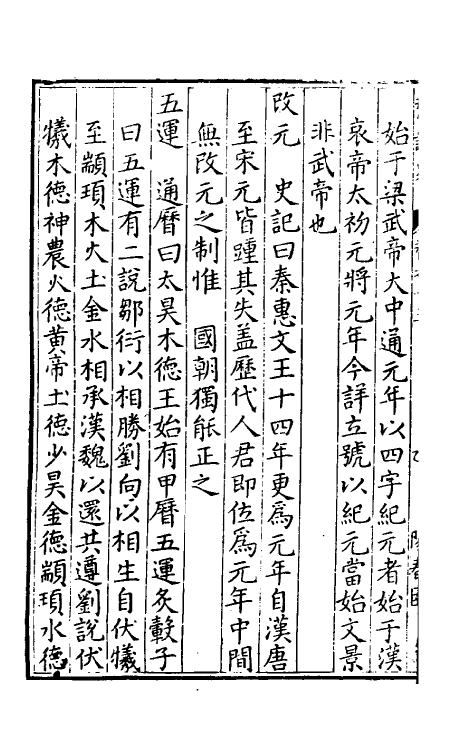 始于梁武帝大中通元年以四字紀元者始于漢
哀帝太初元將元年今詳立號以紀元當始文景
非武帝也
改元　史記曰秦惠文王十四年更爲元年自漢唐
至宋元皆踵其失盖歷代人君即位爲元年中間
無改元之制惟　國朝獨能正之
五運　通曆曰太昊木德王始有甲曆五運灸轂子
曰五運有二說鄒衍以相勝劉向以相生自伏犧
至顓頊木火土金水相承漢魏以還共遵劉說伏
犧木德神農火德黄帝土德少昊金德顓頊水德